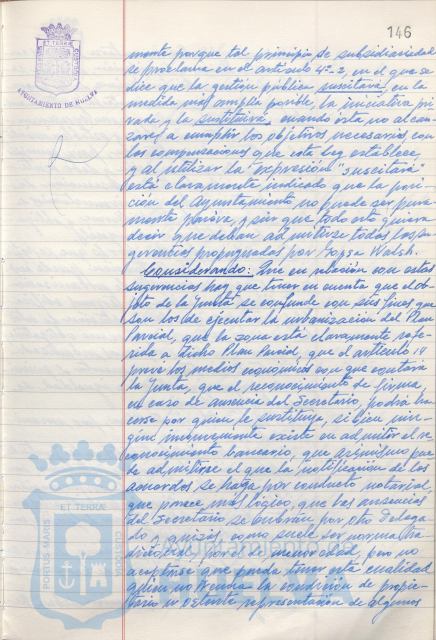 146
AYUNTAMIENTO DE HUELVA
mente porque tal principio de subsidiariedad
se proclama en el artículo 4º-2, en el que se
dice que la gestión pública suscitará, en la
medida más amplia posible, la iniciativa pri
vada y la sustituirá cuando ésta no alcan
zare a cumplir los objetivos necesarios con
las compensaciones que esta ley establece
y al utilizar la expresión "suscitará"
está claramente indicado que la posi
ción del Ayuntamiento no puede ser pura
mente pasiva, y sin que todo esto quiera
decir que deban admitirse todas las su
gerencias propugnadas por Walsh.
Considerando: Que en relación con estas
sugerencias hay que tener en cuenta que el ob
jeto de la Junta se confunde con sus fines que
son los de ejecutar la urbanización del Plan
Parcial, que la zona está claramente refe
rida a dicho Plan Parcial, que el artículo 14
prevé los medios económicos con que contará
la Junta, que el reconocimiento de firma,
en caso de ausencia del Secretario, podrá ha
cerse por quien le sustituye, si bien nin
gún inconveniente existe en admitir el re
conocimiento bancario, que asimismo pue
de admitirse el que la notificación de los
acuerdos se haga por conducto notarial,
que parece más lógico, que las ausencias
del Secretario se cubran por otro Delega
do y quizás, como suele ser norma tra
dicional, por el de menor edad, pero no
aceptarse que pueda tener esta cualidad
quien no tenga la condición de propie
tario ni ostente representación de algunos
ET TERRÆ
PORTUS MARIS
CUSTODIA